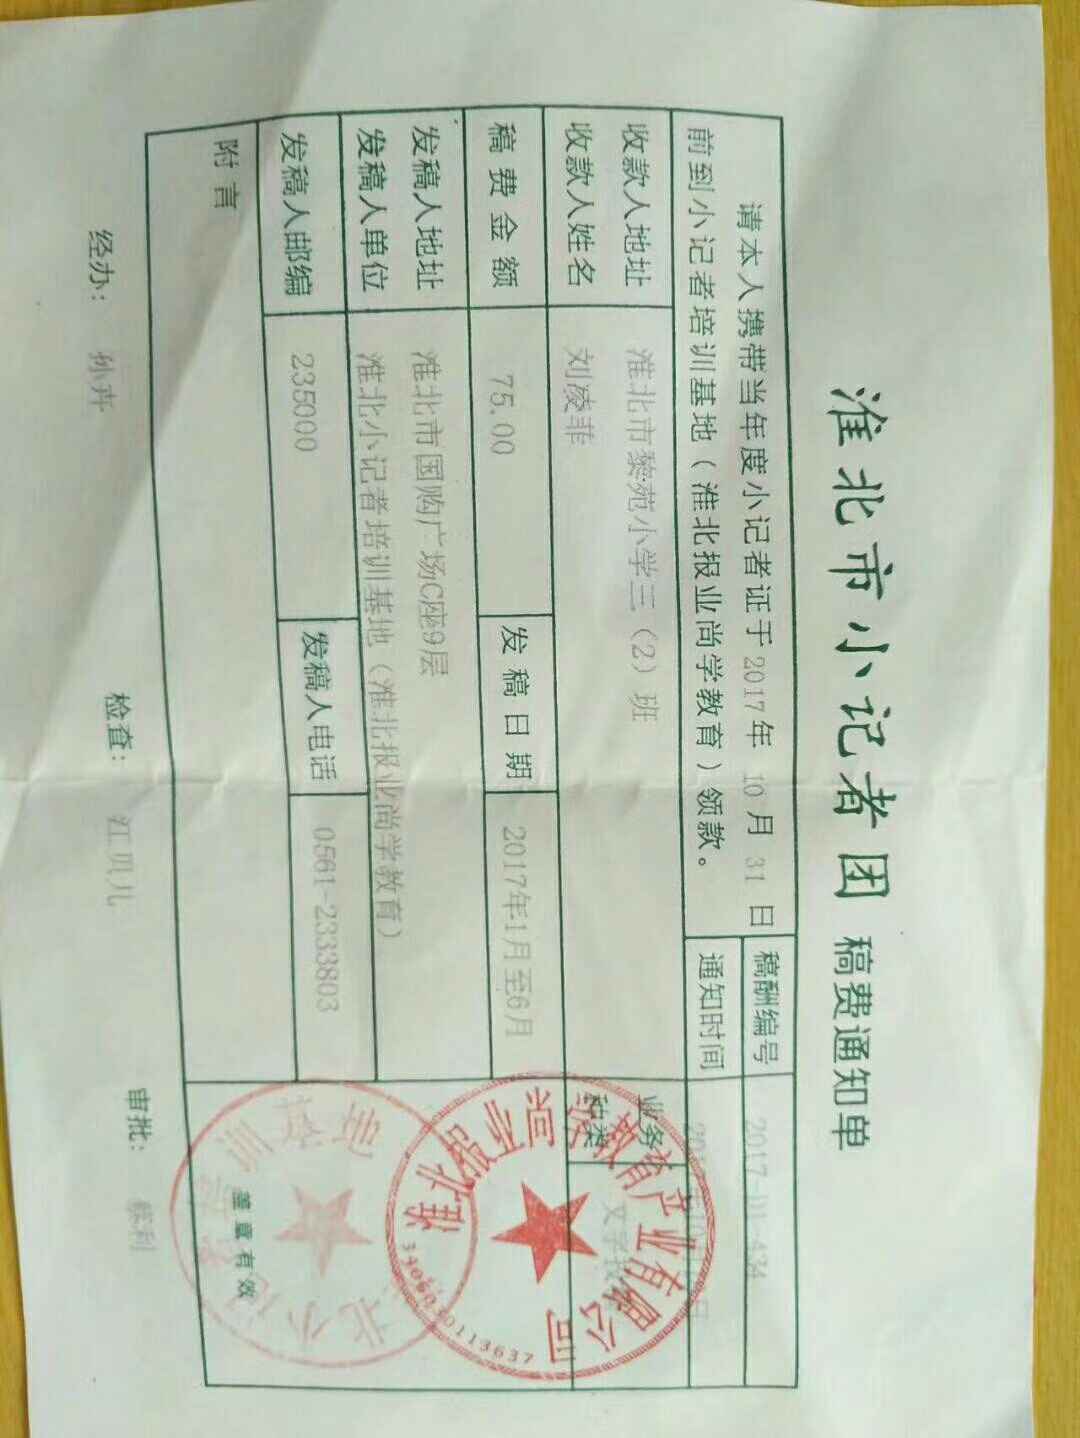 淮北市小记者团 稿费通知单
请本人携带当年度小记者证于 2017年 10 月 31 日
前到小记者培训基地（淮北报业尚学教育）领款。
稿酬编号 2017-D1-434
通知时间
收款人地址 淮北市黎苑小学三（2）班
收款人姓名 刘凌菲
业务
种类
稿费金额 75.00 发稿日期 2017年1月至6月
发稿人地址 淮北市国购广场C座9层
发稿人单位 淮北小记者培训基地（淮北报业尚学教育）
发稿人邮编 235000 发稿人电话 0561-2333803
附言
盖章有效
淮北报业尚学教育产业有限公司
3406030113637
经办： 孙卉 检查： 江贝儿 审批：